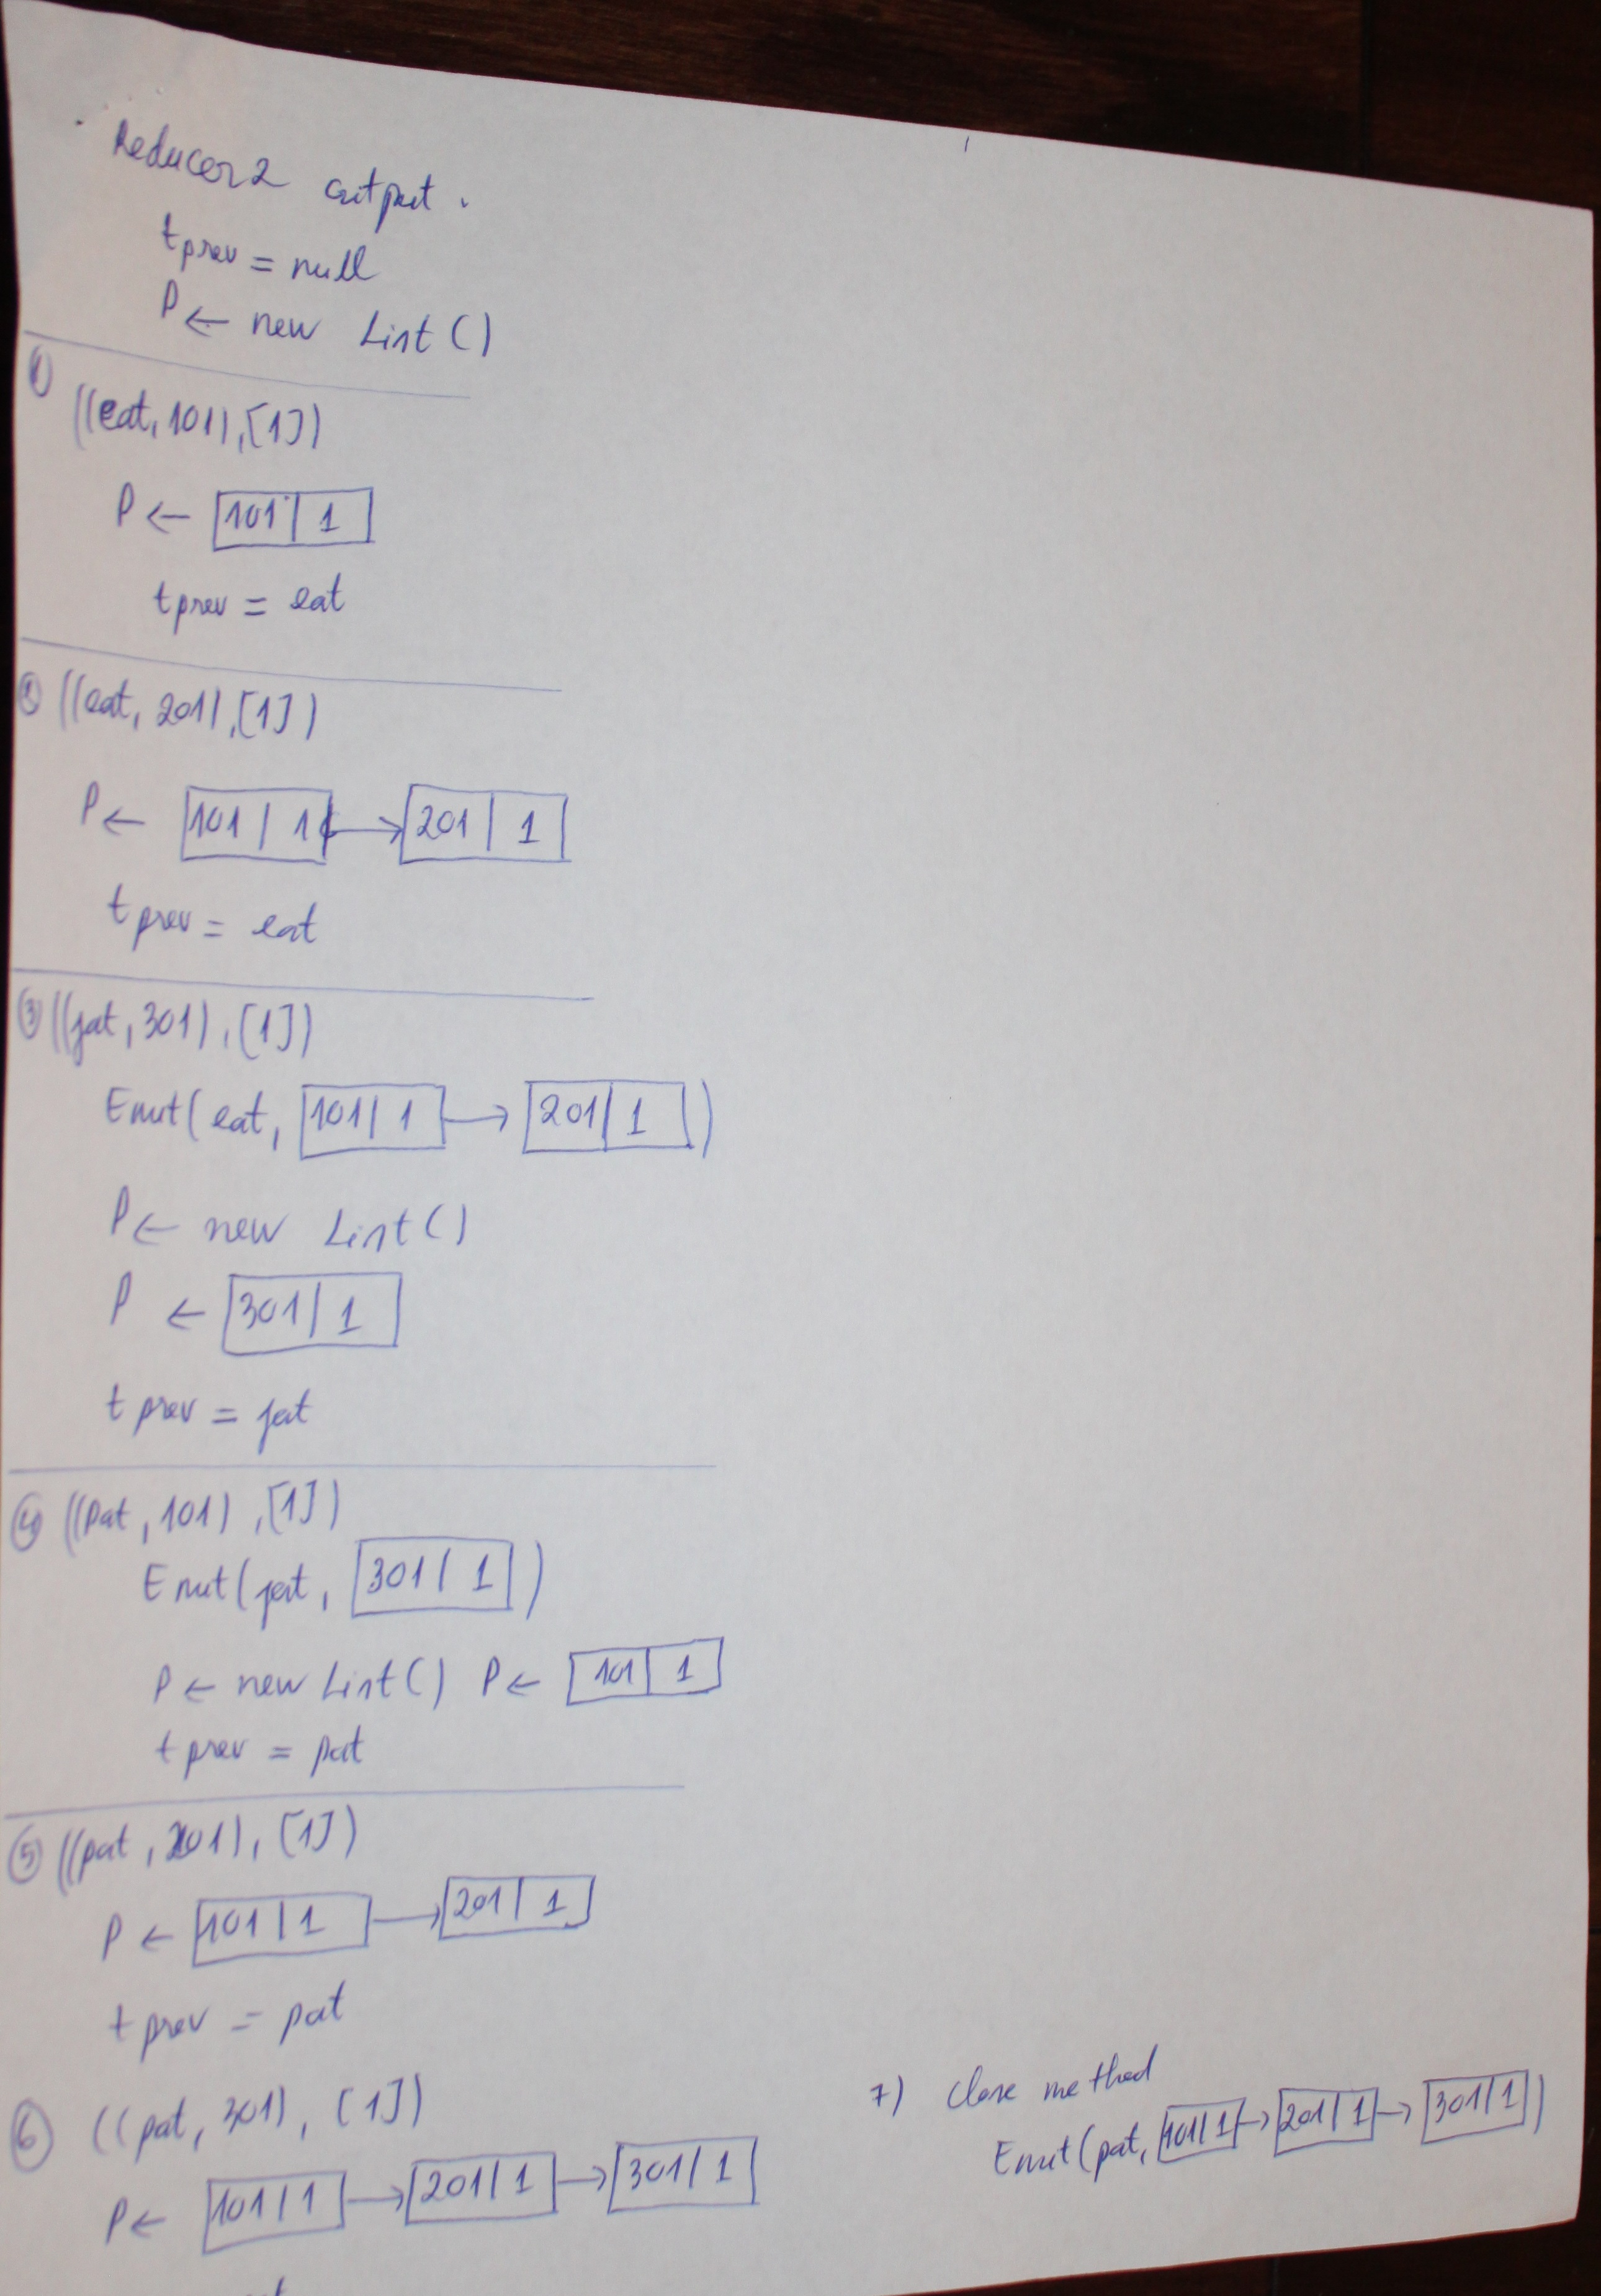 Reducer2 output.
tprev = null
P ← new List()
① ((eat, 101), [1])
P ← 101 | 1
tprev = eat
② ((eat, 201), [1])
P ← 101 | 1 → 201 | 1
tprev = eat
③ ((jat, 301), [1])
Emit(eat, 101 | 1 → 201 | 1)
P ← new List()
P ← 301 | 1
tprev = jat
④ ((Pat, 101), [1])
Emit(jat, 301 | 1)
P ← new List() P ← 101 | 1
tprev = pat
⑤ ((pat, 201), [1])
P ← 101 | 1 → 201 | 1
tprev = pat
⑥ ((pat, 301), [1])
P ← 101 | 1 → 201 | 1 → 301 | 1
7) Close method
Emit(pat, 101 | 1 → 201 | 1 → 301 | 1)